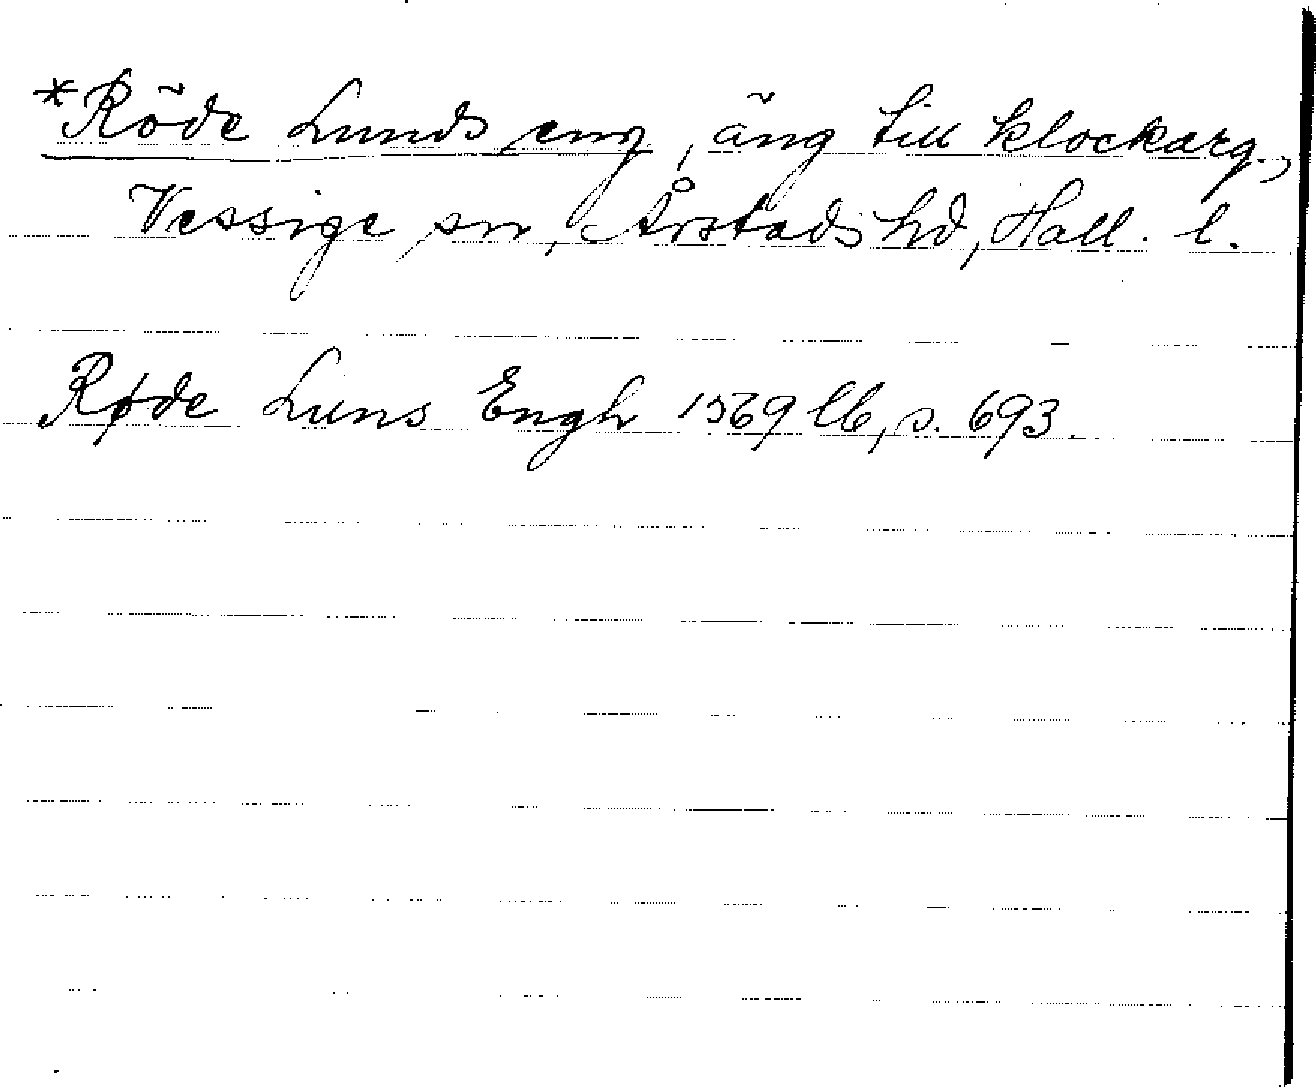 *Röde Lunds eng, äng till klockarg.,
Vessige sn, Årstads hd, Hall. l.
Røde Luns Engh 1569 lb, s. 693.